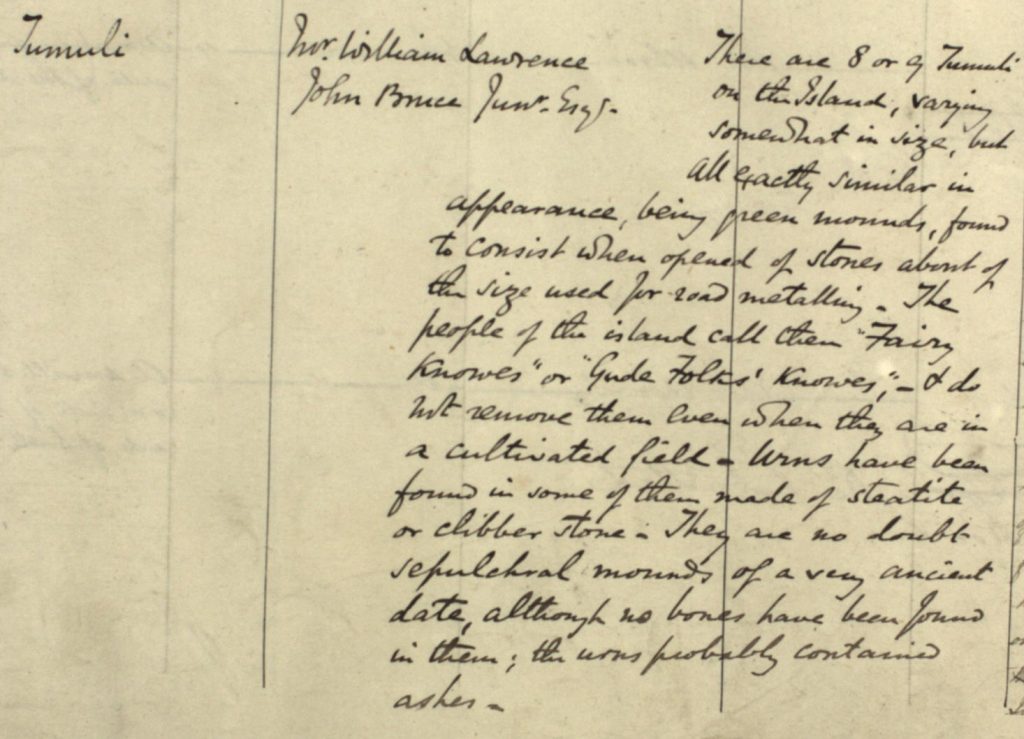 Tumuli
Mr. William Lawrence
John Bruce Junr. Esqr.
There are 8 or 9 Tumuli
on the Island, varying
somewhat in size, but
all exactly similar in
appearance, being green mounds, found
to consist when opened of stones about of
the size used for road metalling - The
people of the island call them "Fairy
Knowes" or "Gude Folks' Knowes", - & do
not remove them even when they are in
a cultivated field - Urns have been
found in some of them made of steatite
or clibber stone - They are no doubt
sepulchral mounds of a very ancient
date, although no bones have been found
in them; the urns probably contained
ashes -